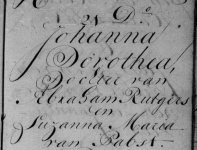 21 Do
Johanna
Dorothea,
Dochter van
Abraham Rutgers
en
Suzanna Maria
van Pabst.